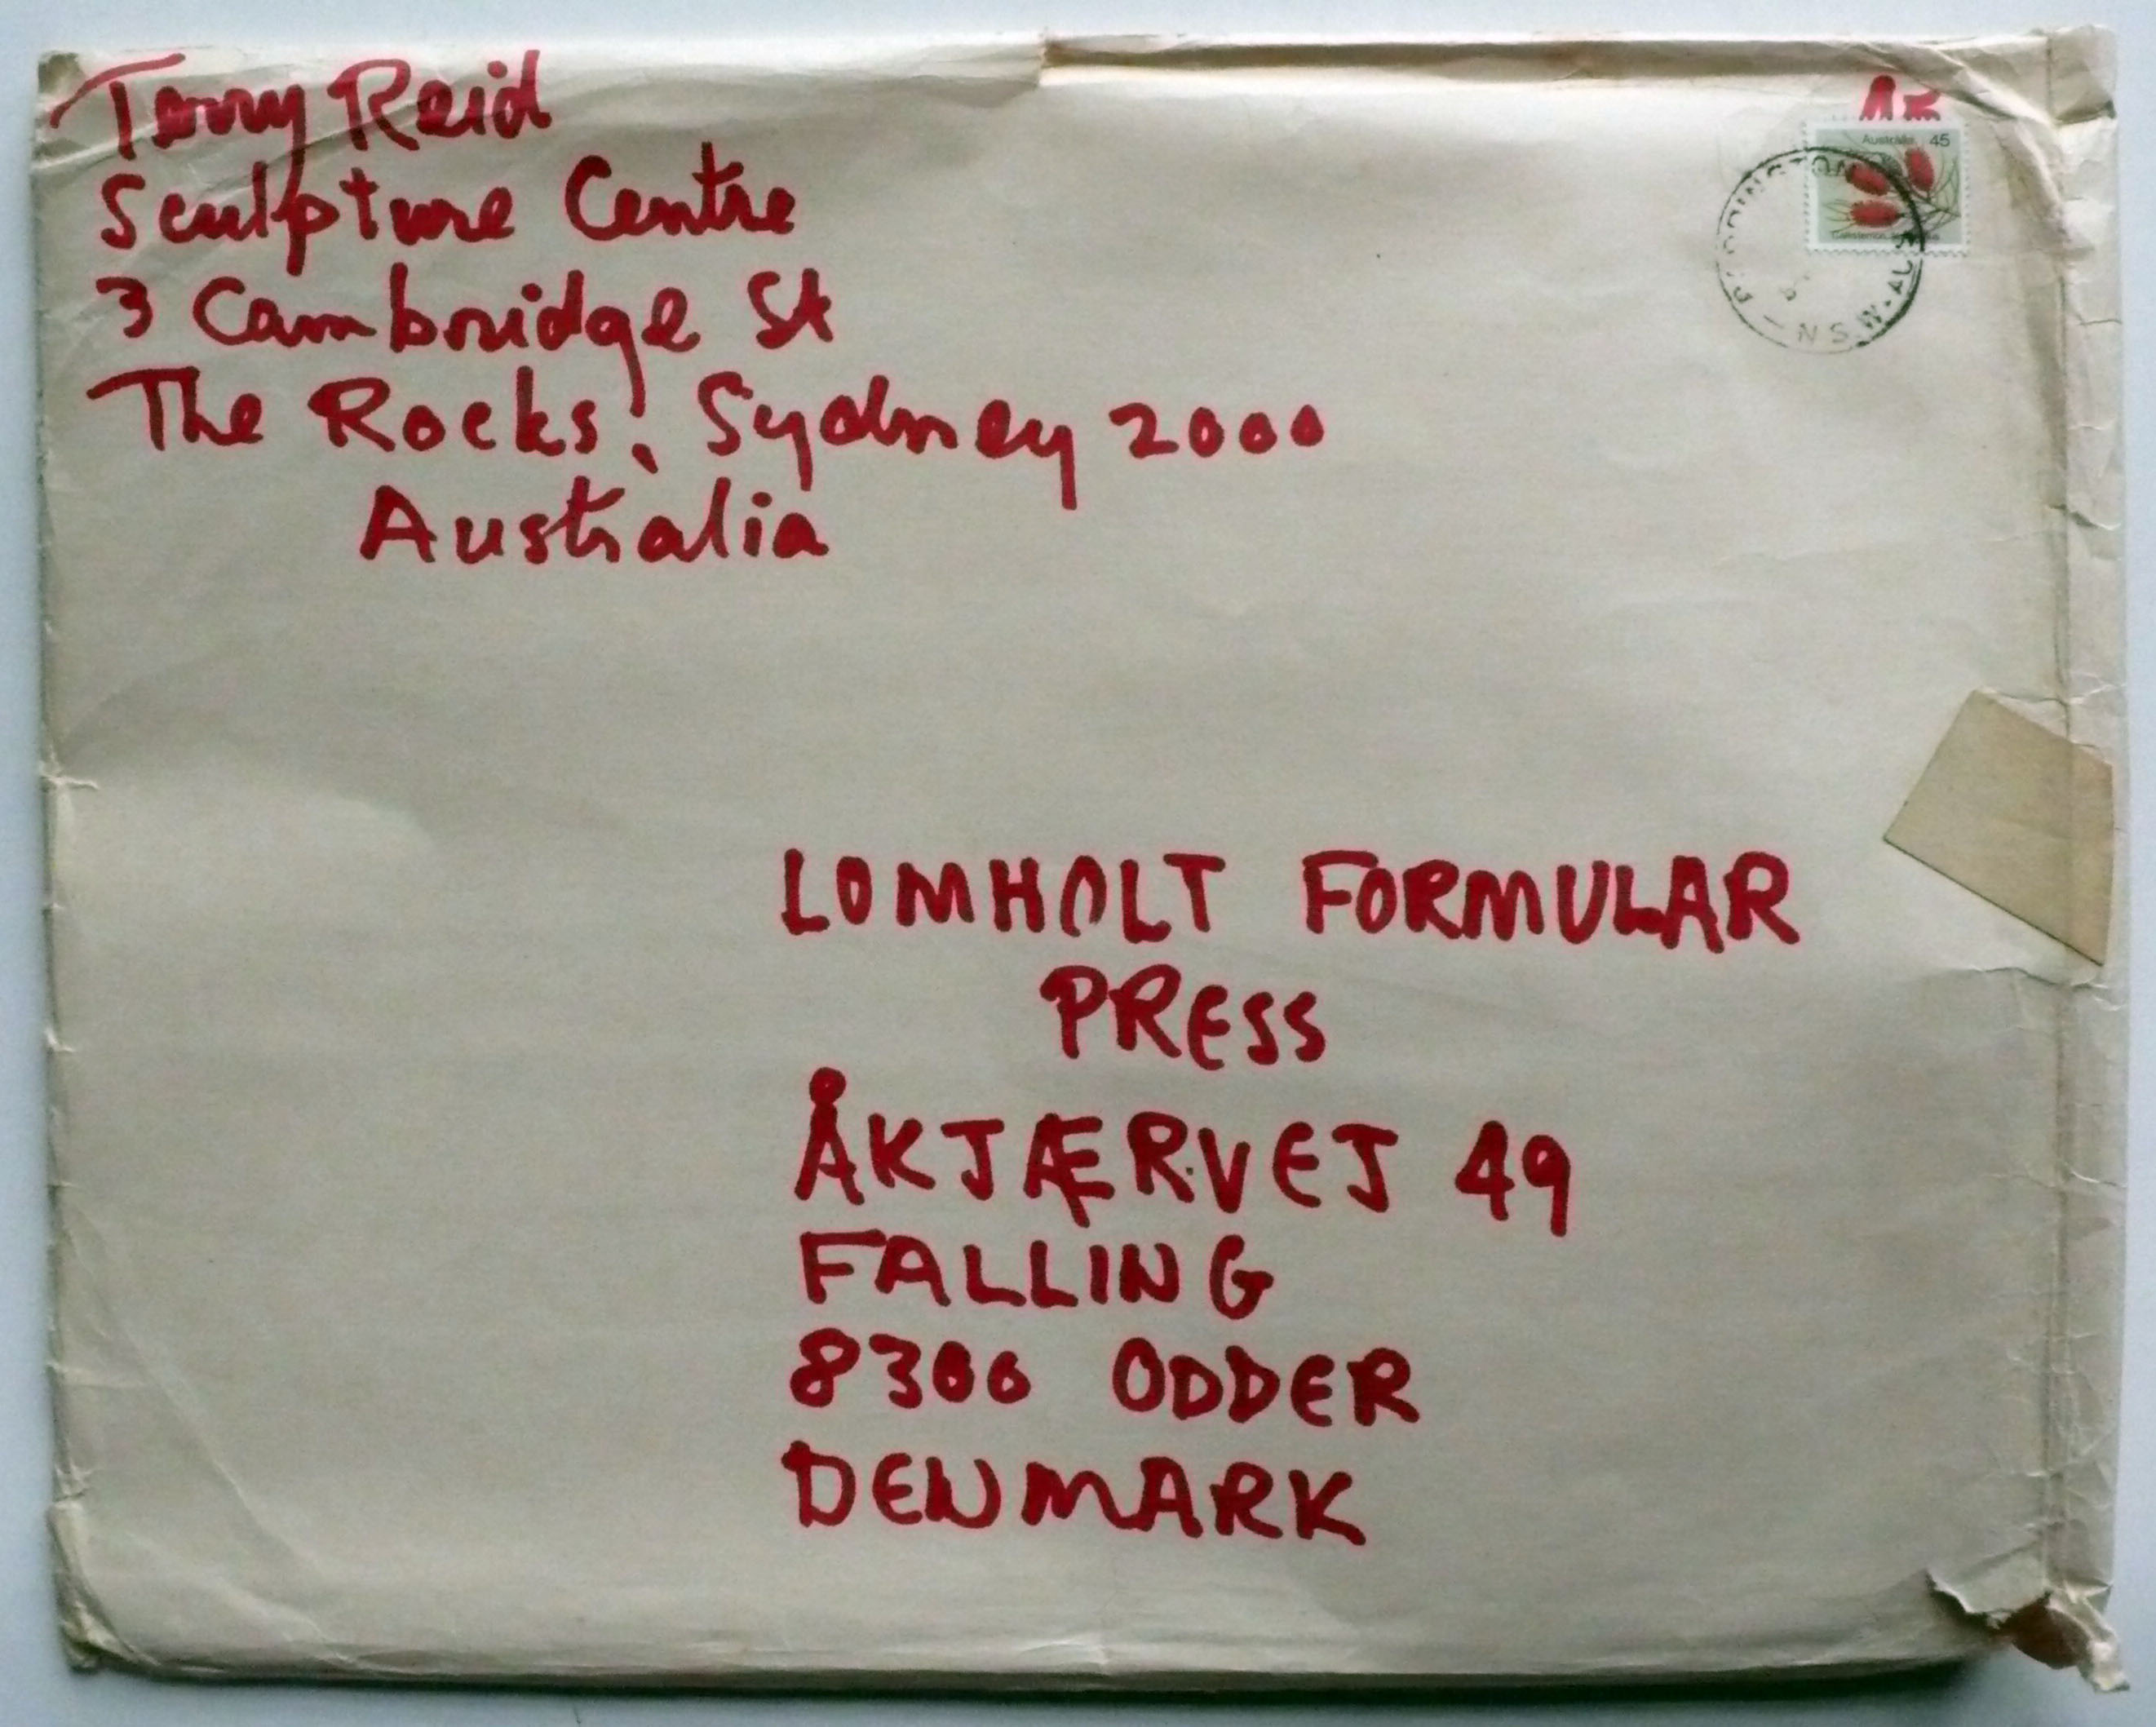 Terry Reid
Sculpture Centre
3 Cambridge St
The Rocks, Sydney 2000
Australia
Australia 45
N.S.W. AUS
LOMHOLT FORMULAR
PRESS
ÅKJÆRVEJ 49
FALLING
8300 ODDER
DENMARK